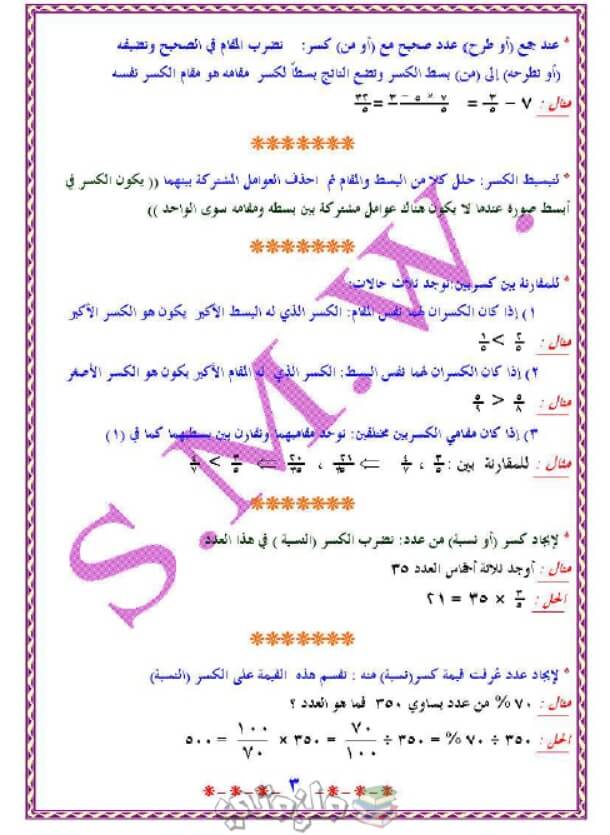 * عند جمع (أو طرح) عدد صحيح مع (أو من) كسر: نضرب المقام في الصحيح ونضيفه
(أو نطرحه) إلى (من) بسط الكسر ونضع الناتج بسطاً لكسر مقامه هو مقام الكسر نفسه
مثال : ٧ − ٣/٥ = (٧ × ٥ − ٣)/٥ = ٣٢/٥
*******
* لتبسيط الكسر: حلل كلا من البسط والمقام ثم احذف العوامل المشتركة بينهما (( يكون الكسر في
أبسط صورة عندما لا يكون هناك عوامل مشتركة بين بسطه ومقامه سوى الواحد ))
*******
* للمقارنة بين كسرين: توجد ثلاث حالات:
١) إذا كان الكسران لهما نفس المقام: الكسر الذي له البسط الأكبر يكون هو الكسر الأكبر
مثال : ٢/٥ > ١/٥
٢) إذا كان الكسران لهما نفس البسط: الكسر الذي له المقام الأكبر يكون هو الكسر الأصغر
مثال : ٥/٨ > ٥/٩
٣) إذا كان مقامي الكسرين مختلفين: نوحد مقاميهما ونقارن بين بسطيهما كما في (١)
مثال : للمقارنة بين : ٣/٥ ، ٤/٧ ⇐ ٢١/٣٥ ، ٢٠/٣٥ ⇐ ٣/٥ > ٤/٧
*******
* لإيجاد كسر (أو نسبة) من عدد: نضرب الكسر (النسبة) في هذا العدد
مثال : أوجد ثلاثة أخماس العدد ٣٥
الحل : ٣/٥ × ٣٥ = ٢١
*******
* لإيجاد عدد عُرفت قيمة كسر(نسبة) منه : نقسم هذه القيمة على الكسر (النسبة)
مثال : ٧٠ % من عدد يساوي ٣٥٠ فما هو العدد ؟
الحل : ٣٥٠ ÷ ٧٠ % = ٣٥٠ ÷ ٧٠/١٠٠ = ٣٥٠ × ١٠٠/٧٠ = ٥٠٠
*-*-*-* ٣ *-*-*-*
S.M.W.